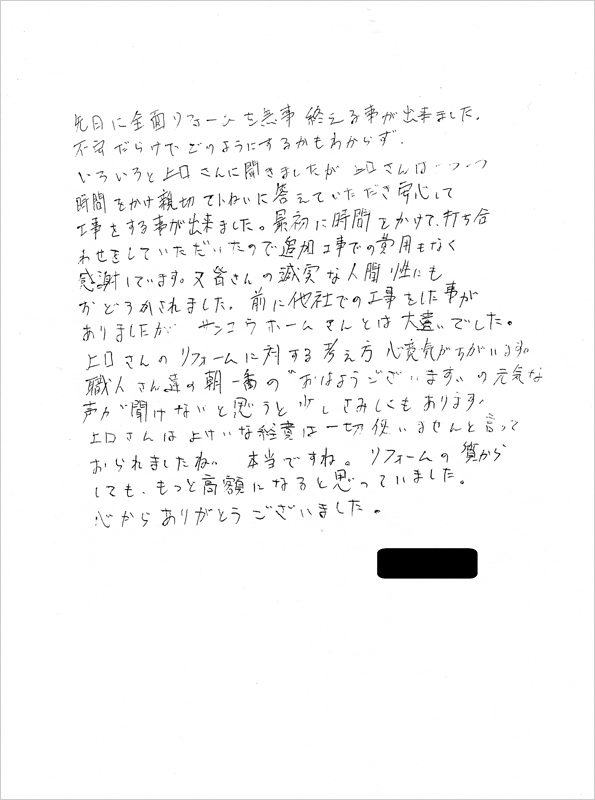 先日に全面リフォームを無事終える事が出来ました。
不安だらけでどのようにするかもわからず、
いろいろと上口さんに聞きましたが上口さんは一つ一つ
時間をかけ親切ていねいに答えていただき安心して
工事をする事が出来ました。最初に時間をかけて、打ち合
わせをしていただいたので追加工事での費用もなく
感謝しています。又皆さんの誠実な人間性にも
おどろかされました。前に他社での工事をした事が
ありましたが サンコウホームさんとは大違いでした。
上口さんのリフォームに対する考え方 心意気がちがいます。
職人さん達の朝一番の"おはようございます"の元気な
声が聞けないと思うと少しさみしくもあります。
上口さんはよけいな経費は一切使いませんと言って
おられましたね。 本当ですね。リフォームの質から
しても、もっと高額になると思っていました。
心からありがとうございました。